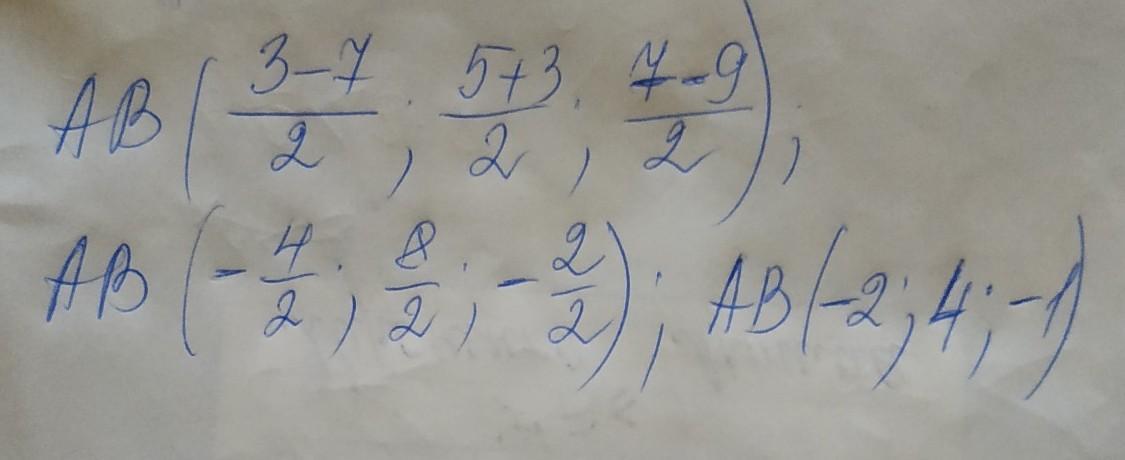 AB (3-7/2; 5+3/2; 7-9/2);
AB (-4/2; 8/2; -2/2); AB(-2; 4; -1)